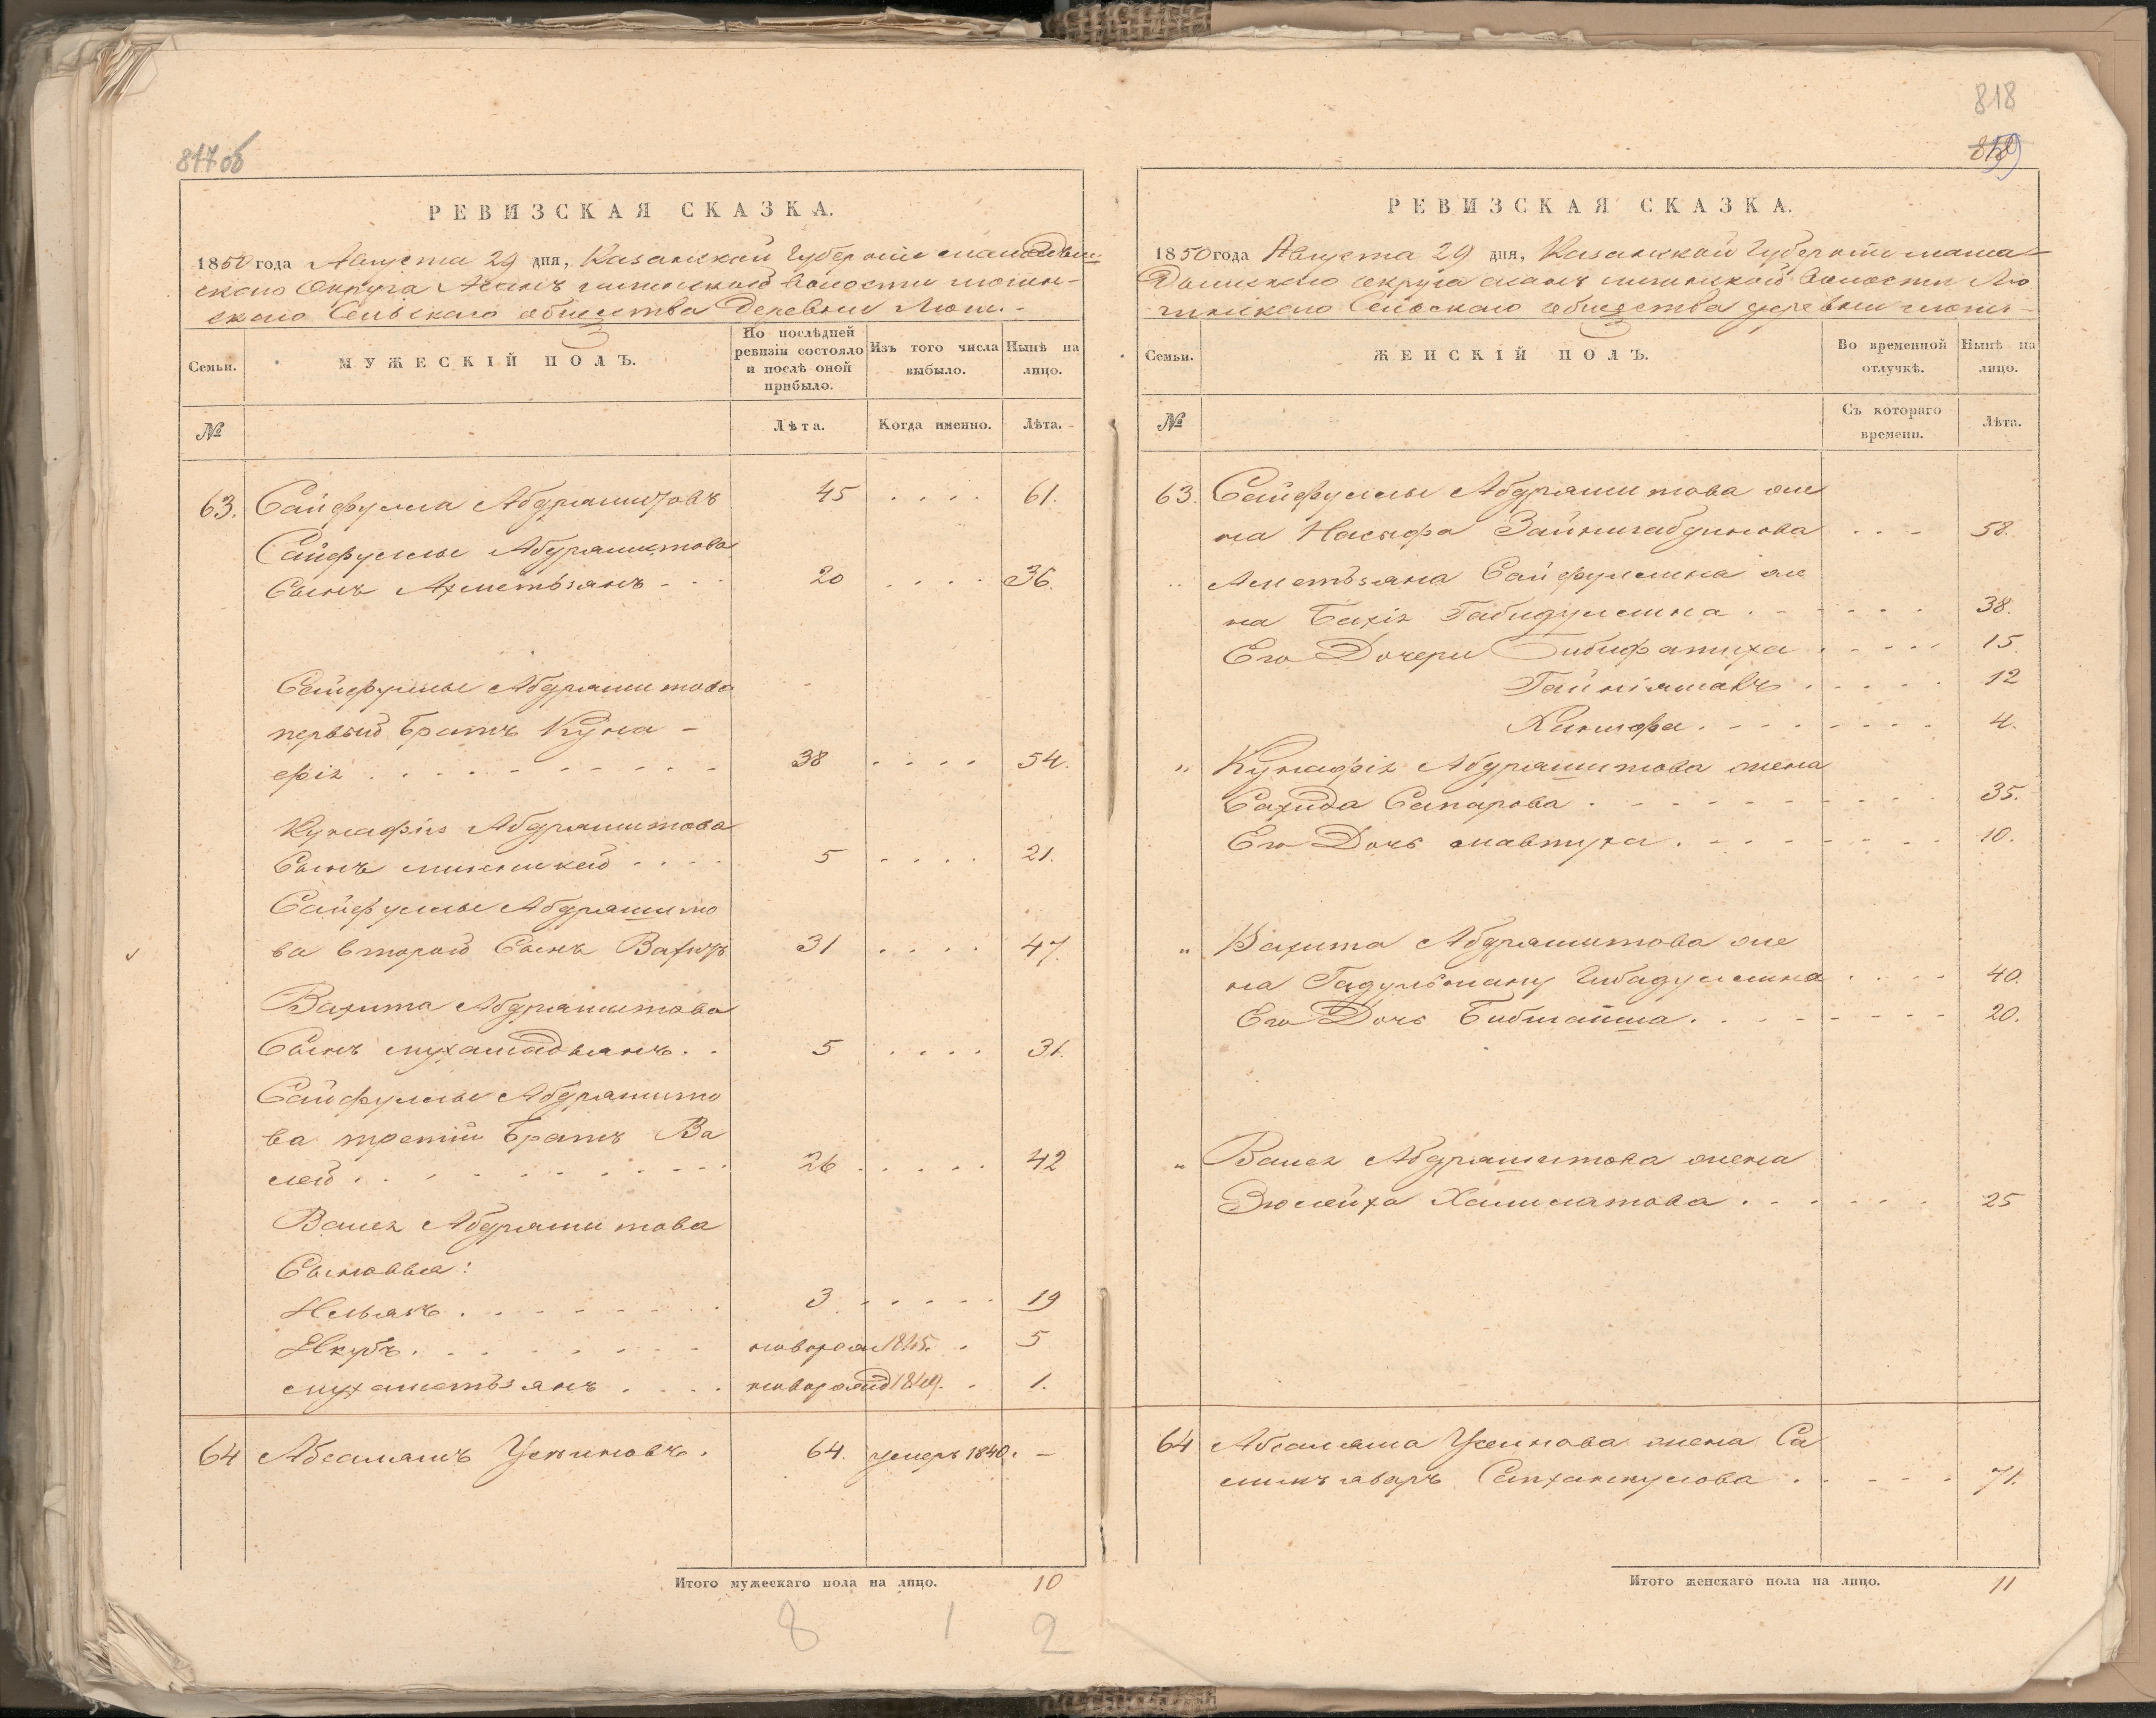 817 об
РЕВИЗСКАЯ СКАЗКА.
1850 года Августа 29 дня, Казанской Губерніи мамадыш-
скаго Округа
скаго Сельскаго общества Деревни Люш.
Семьи.
МУЖЕСКІЙ ПОЛЪ.
По послѣдней ревизіи состояло и послѣ оной прибыло.
Изъ того числа выбыло.
Нынѣ на лицо.
№
Лѣта.
Когда именно.
Лѣта.
63. Сайфулла Абдрашитовъ 45 . . . . 61.
Сайфуллы Абдрашитова
Сынъ Ахметьзянъ - - - 20 . . . . 36.
Сайфуллы Абдрашитова
первый братъ Куна-
фія . . . . . . . . . . 38 . . . . 54.
Кунафія Абдрашитова
Сынъ минликей . . . . 5 . . . . 21.
Сайфуллы Абдрашито
ва второй Сынъ Вахитъ 31 . . . . 47.
Вахита Абдрашитова
Сынъ мухамадьянъ . . 5 . . . . 31.
Сайфуллы Абдрашито
ва третій братъ Ва
лей . . . . . . . . . . 26 . . . . . 42
Валея Абдрашитова
Сыновья:
Ильясъ . . . . . . . . 3 . . . . . 19
Якубъ . . . . . . . . новорож 1845. . 5
мухаметьзянъ . . . . новорожд 1849. . 1.
64 Абсалямъ Усеиновъ . 64. умеръ 1840. . —
Итого мужескаго пола на лицо. 10
8 1 2
818
РЕВИЗСКАЯ СКАЗКА.
1850 года Августа 29 дня, Казанской Губерніи мама-
дышскаго округа волости Лю
шинскаго Сельскаго общества деревни люшъ
Семьи.
ЖЕНСКІЙ ПОЛЪ.
Во временной отлучкѣ.
Нынѣ на лицо.
№
Съ котораго времени.
Лѣта.
63. Сайфуллы Абдрашитова же
на Насыфа Зайнигабдинова . . . 58.
Ахметьзяна Сайфуллина же
на Бахія Габидуллина . . . . . . 38.
Его Дочери Бибифатиха . . . . . 15.
Гайніямалъ . . . . . 12
Ханифа . . . . . . . . 4.
" Кунафія Абдрашитова жена
Сахида Сапарова . . . . . . . . . 35.
Его Дочь мавтуха . . . . . . . . 10.
" Вахита Абдрашитова же
на Ибадуллина . . . . 40.
Его Дочь Бибигайша . . . . . . . . 20.
" Валея Абдрашитова жена
Зюлейха Халилатова . . . . . . 25
64 Абсаляма Усеинова жена Са
. . . . . 71.
Итого женскаго пола на лицо. 11